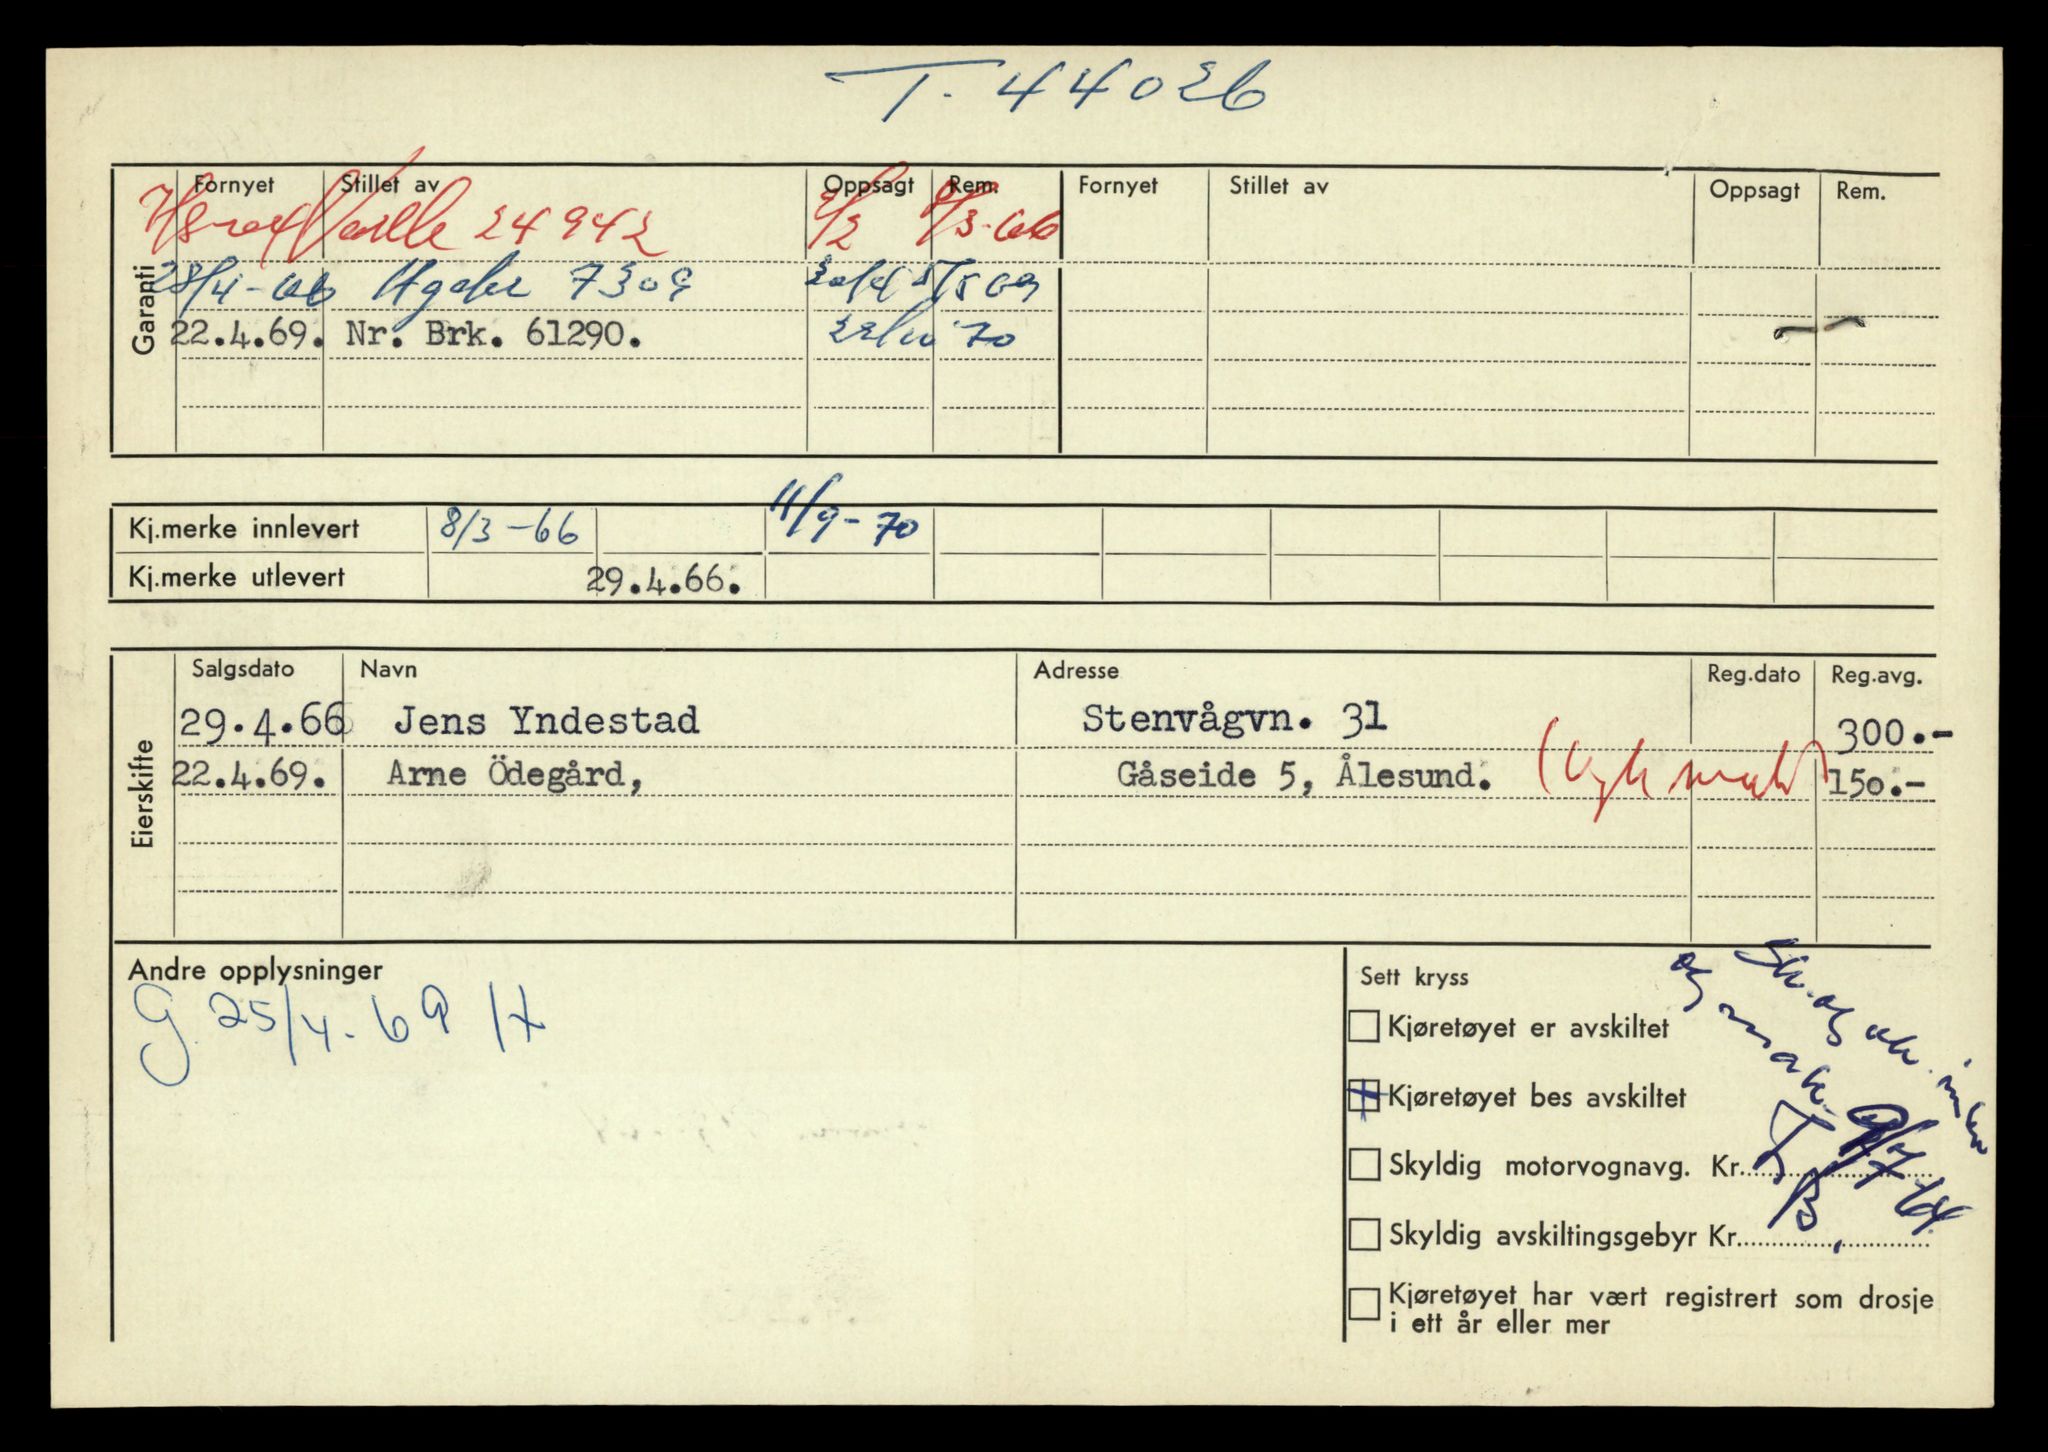 T. 44026
Garanti
Fornyet Stillet av Oppsagt Rem. Fornyet Stillet av Oppsagt Rem.
24942 8/3-66
28/4-66 7309
22.4.69. Nr. Brk. 61290. 70
Kj.merke innlevert 8/3-66 11/9-70
Kj.merke utlevert 29.4.66.
Eierskifte
Salgsdato Navn Adresse Reg.dato Reg.avg.
29.4.66 Jens Yndestad Stenvågvn. 31 300.-
22.4.69. Arne Ödegård, Gåseide 5, Ålesund. 150.-
Andre opplysninger
G. 25/4-69
Sett kryss
Kjøretøyet er avskiltet
Kjøretøyet bes avskiltet
Skyldig motorvognavg. Kr.
Skyldig avskiltingsgebyr Kr.
Kjøretøyet har vært registrert som drosje
i ett år eller mer